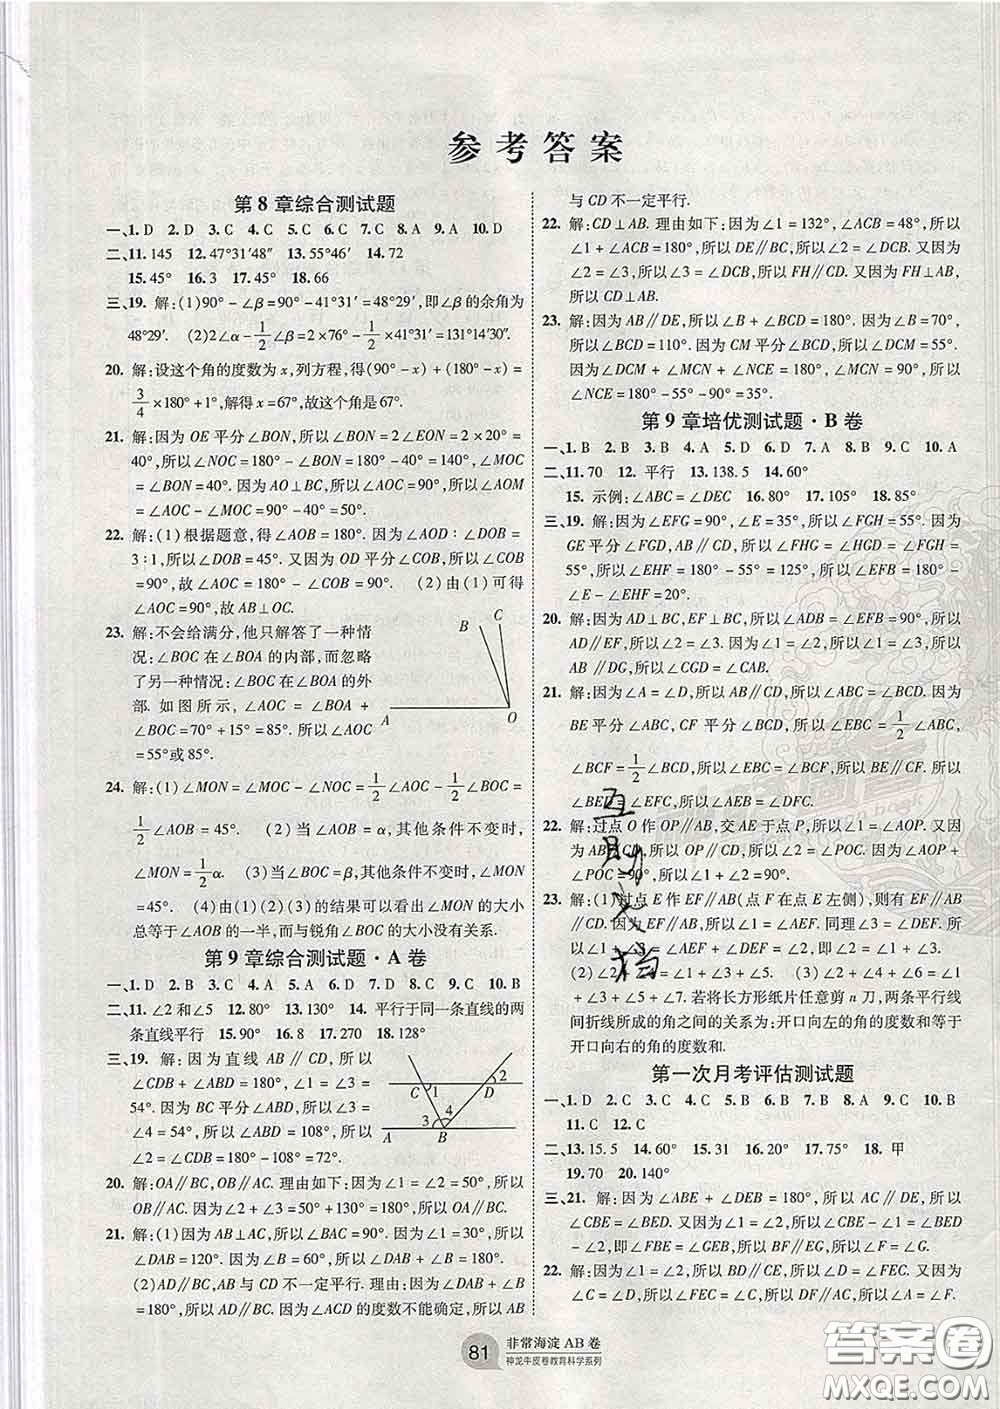 参考答案
第8章综合测试题
一、1. D  2. D  3. C  4. C  5. C  6. C  7. C  8. A  9. A  10. D
二、11. 145  12. 47°31′48″  13. 55°46′  14. 72
15. 45°  16. 3  17. 45°  18. 66
三、19. 解:(1)90°－∠β＝90°－41°31′＝48°29′,即∠β的余角为
48°29′.  (2)2∠α－1/2∠β＝2×76°－1/2×41°31′＝131°14′30″.
20. 解:设这个角的度数为x,列方程,得(90°－x)＋(180°－x)＝
3/4×180°＋1°,解得x＝67°,故这个角是67°.
21. 解:因为OE平分∠BON,所以∠BON＝2∠EON＝2×20°＝
40°,所以∠NOC＝180°－∠BON＝180°－40°＝140°,∠MOC＝
∠BON＝40°. 因为AO⊥BC,所以∠AOC＝90°,所以∠AOM
＝∠AOC－∠MOC＝90°－40°＝50°.
22. 解:(1)根据题意,得∠AOB＝180°. 因为∠AOD∶∠DOB＝
3∶1,所以∠DOB＝45°. 又因为OD平分∠COB,所以∠COB
＝90°,故∠AOC＝180°－∠COB＝90°.  (2)由(1)可得
∠AOC＝90°,故AB⊥OC.
23. 解:不会给满分,他只解答了一种情
况:∠BOC在∠BOA的内部,而忽略
了另一种情况:∠BOC在∠BOA的外
部. 如图所示,∠AOC＝∠BOA＋
∠BOC＝70°＋15°＝85°,故∠AOC
＝55°或85°.
B
C
A
O
24. 解:(1)∠MON＝∠MOC－∠NOC＝1/2∠AOC－1/2∠BOC＝
1/2∠AOB＝45°.  (2)当∠AOB＝α,其他条件不变时,
∠MON＝1/2α.  (3)当∠BOC＝β,其他条件不变时,∠MON
＝45°.  (4)由(1)(2)(3)的结果可以看出∠MON的大小
总等于∠AOB的一半,而与锐角∠BOC的大小没有关系.
第9章综合测试题·A卷
一、1. D  2. B  3. C  4. A  5. C  6. B  7. D  8. C  9. C  10. B
二、11. ∠2和∠5  12. 80°  13. 130°  14. 平行于同一条直线的两
条直线平行  15. 90°  16. 8  17. 270  18. 128°
三、19. 解:因为直线AB∥CD,所以
∠CDB＋∠ABD＝180°,∠1＝∠3＝
54°. 因为BC平分∠ABD,所以∠3＝
∠4＝54°,所以∠ABD＝108°,所以
∠2＝∠CDB＝180°－108°＝72°.
C
1
D
2
3
4
A
B
20. 解:OA∥BC,OB∥AC. 理由如下:因为∠1＝50°,∠2＝50°,所以
OB∥AC. 又因为∠2＋∠3＝50°＋130°＝180°,所以OA∥BC.
21. 解:(1)因为AB⊥AC,所以∠BAC＝90°. 因为∠1＝30°,所以
∠DAB＝120°. 因为∠B＝60°,所以∠DAB＋∠B＝180°.
(2)AD∥BC,AB与CD不一定平行. 理由:因为∠DAB＋∠B
＝180°,所以AD∥BC. 因为∠ACD的度数不能确定,所以AB
与CD不一定平行.
22. 解:CD⊥AB. 理由如下:因为∠1＝132°,∠ACB＝48°,所以
∠1＋∠ACB＝180°,所以DE∥BC,所以∠2＝∠DCB. 又因为
∠2＝∠3,所以∠3＝∠DCB,所以FH∥CD. 又因为FH⊥AB,
所以CD⊥AB.
23. 解:因为AB∥DE,所以∠B＋∠BCD＝180°. 因为∠B＝70°,
所以∠BCD＝110°. 因为CM平分∠BCD,所以∠DCM＝55°.
因为∠DCM＋∠MCN＋∠NCE＝180°,∠MCN＝90°,所以
∠NCE＝180°－55°－90°＝35°.
第9章培优测试题·B卷
一、1. B  2. B  3. B  4. A  5. D  6. D  7. B  8. C  9. C  10. A
二、11. 70  12. 平行  13. 138.5  14. 60°
15. 示例:∠ABC＝∠DEC  16. 80°  17. 105°  18. 85°
三、19. 解:因为∠EFG＝90°,∠E＝35°,所以∠FGH＝55°. 因为
GE平分∠FGD,AB∥CD,所以∠FHG＝∠HGD＝∠FGH＝
55°,所以∠EHF＝180°－55°＝125°,所以∠EFB＝180°－
∠E－∠EHF＝20°.
20. 解:因为AD⊥BC,EF⊥BC,所以∠ADB＝∠EFB＝90°,所以
AD∥EF,所以∠2＝∠3. 因为∠1＝∠2,所以∠1＝∠3,所以
AB∥DG,所以∠CGD＝∠CAB.
21. 解:因为∠A＝∠D,所以AB∥CD,所以∠ABC＝∠BCD. 因为
BE平分∠ABC,CF平分∠BCD,所以∠EBC＝1/2∠ABC,
∠BCF＝1/2∠BCD,所以∠EBC＝∠BCF,所以BE∥CF,所以
∠BEF＝∠EFC,所以∠AEB＝∠DFC.
22. 解:过点O作OP∥AB,交AE于点P,所以∠1＝∠AOP. 又因
为AB∥CD,所以OP∥CD,所以∠2＝∠POC. 因为∠AOP＋
∠POC＝90°,所以∠1＋∠2＝90°.
23. 解:(1)过点E作EF∥AB(点F在点E左侧),则有EF∥AB
∥CD. 因为EF∥AB,所以∠1＝∠AEF. 同理∠3＝∠DEF.
所以∠1＋∠3＝∠AEF＋∠DEF＝∠2,即∠2＝∠1＋∠3.
(2)∠2＋∠4＝∠1＋∠3＋∠5.  (3)∠2＋∠4＋∠6＝∠1
＋∠3＋∠5＋∠7. 若将长方形纸片任意剪n刀,两条平行线
间折线所成的角之间的关系为:开口向左的角的度数和等于
开口向右的角的度数和.
互助文档
第一次月考评估测试题
一、1. D  2. C  3. C  4. C  5. B  6. D  7. B  8. A  9. C  10. B
11. C  12. C
二、13. 15.5  14. 60°  15. 30°  16. 12  17. 75°  18. 甲
19. 70  20. 140°
三、21. 解:因为∠ABE＋∠DEB＝180°,所以AC∥DE,所以
∠CBE＝∠BED. 又因为∠1＝∠2,所以∠CBE－∠1＝∠BED
－∠2,即∠FBE＝∠GEB,所以BF∥GE,所以∠F＝∠G.
22. 解:因为∠1＝∠2,所以BD∥CE,所以∠D＝∠FEC. 又因为
∠C＝∠D,所以∠FEC＝∠C,所以AC∥DF,所以∠A＝∠F.
81
非常海淀AB卷
神龙牛皮卷教育科学系列
答案卷
MXQE.COM